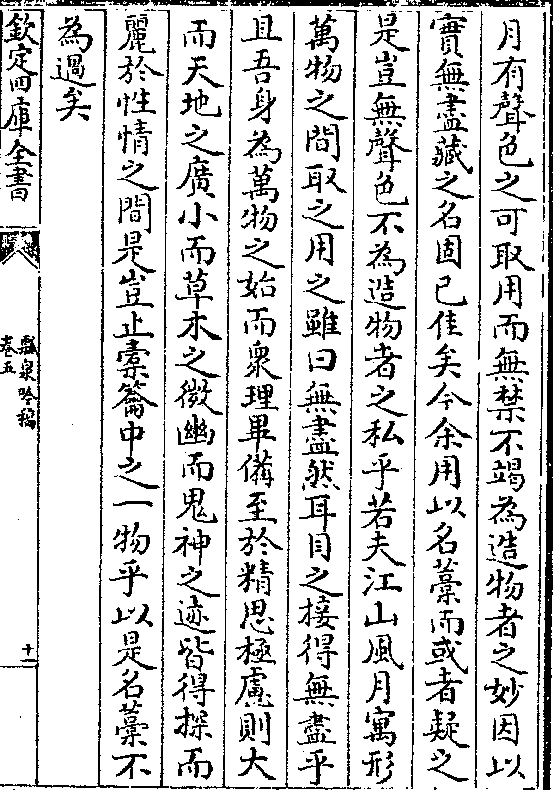 月有聲色之可取用而無禁不竭為造物者之妙因以
實無盡藏之名固已佳矣今余用以名藁而或者疑之
是豈無聲色不為造物者之私乎若夫江山風月寓形
萬物之間取之用之雖曰無盡然耳目之接得無盡乎
且吾身為萬物之始而衆理畢備至於精思極慮則大
而天地之廣小而草木之微幽而鬼神之迹皆得探而
麗於性情之間是豈止橐籥中之一物乎以是名藁不
為過矣
欽定四庫全書
瓢泉吟稿
卷五
十一